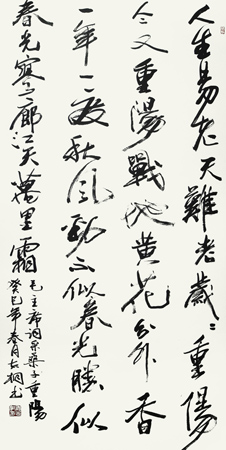 人生易老天難老歲々重陽
今又重陽戰地黄花分外香
一年一度秋風勁不似春光勝似
春光寥廓江天萬里霜
毛主席詞采桑子重陽
癸巳年春月